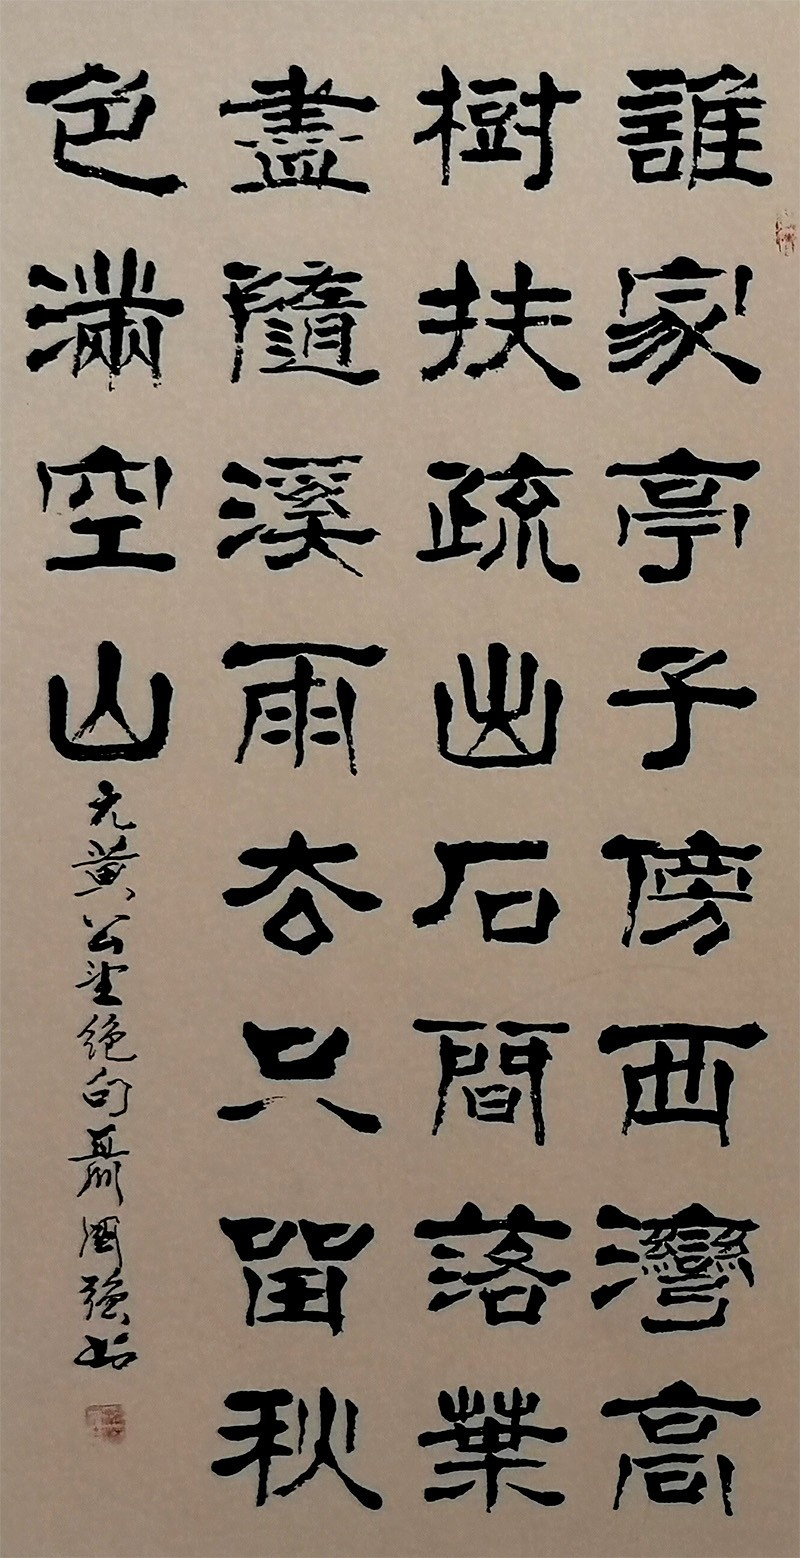 誰家亭子傍西灣高
樹扶疏出石間落葉
盡隨溪雨去只留秋
色滿空山
元黃公望絕句聶國強書